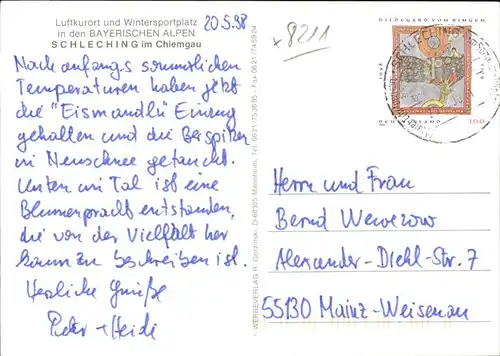 Luftkurort und Wintersportplatz
in den BAYERISCHEN ALPEN
SCHLECHING im Chiemgau
20.5.98
Nach anfangs sommerlichen
Temperaturen haben jetzt
die "Eismandln" Einzug
gehalten und die Bergspitzen
in Neuschnee getaucht.
Unten im Tal ist eine
Blumenpracht entstanden,
die von der Vielfalt her
kaum zu beschreiben ist.
Herzliche Grüße
Peter + Heidi
WERBEVERLAG R. Gorzinski, D-68305 Mannheim, Tel. 0621/753695 · Fax 0621/745924
x 8211
HILDEGARD VON BINGEN
DEUTSCHLAND 100
SCHLECHING
Herrn und Frau
Bernd Wewezow
Alexander-Diehl-Str. 7
55130 Mainz-Weisenau